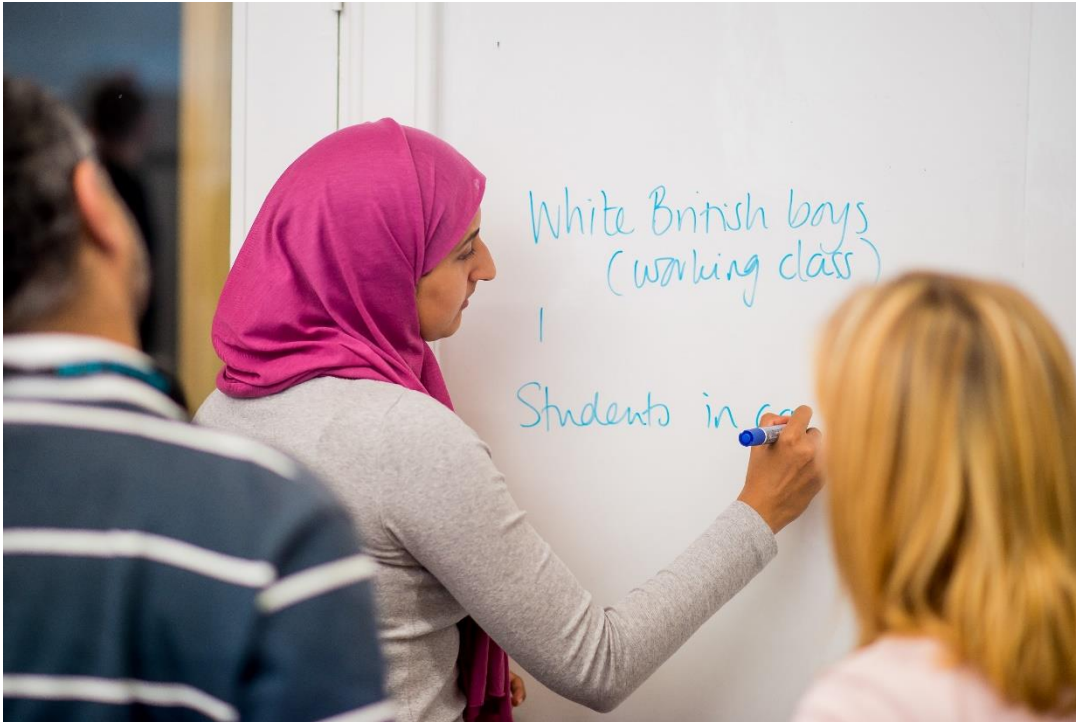 White British boys
(working class)
Students in